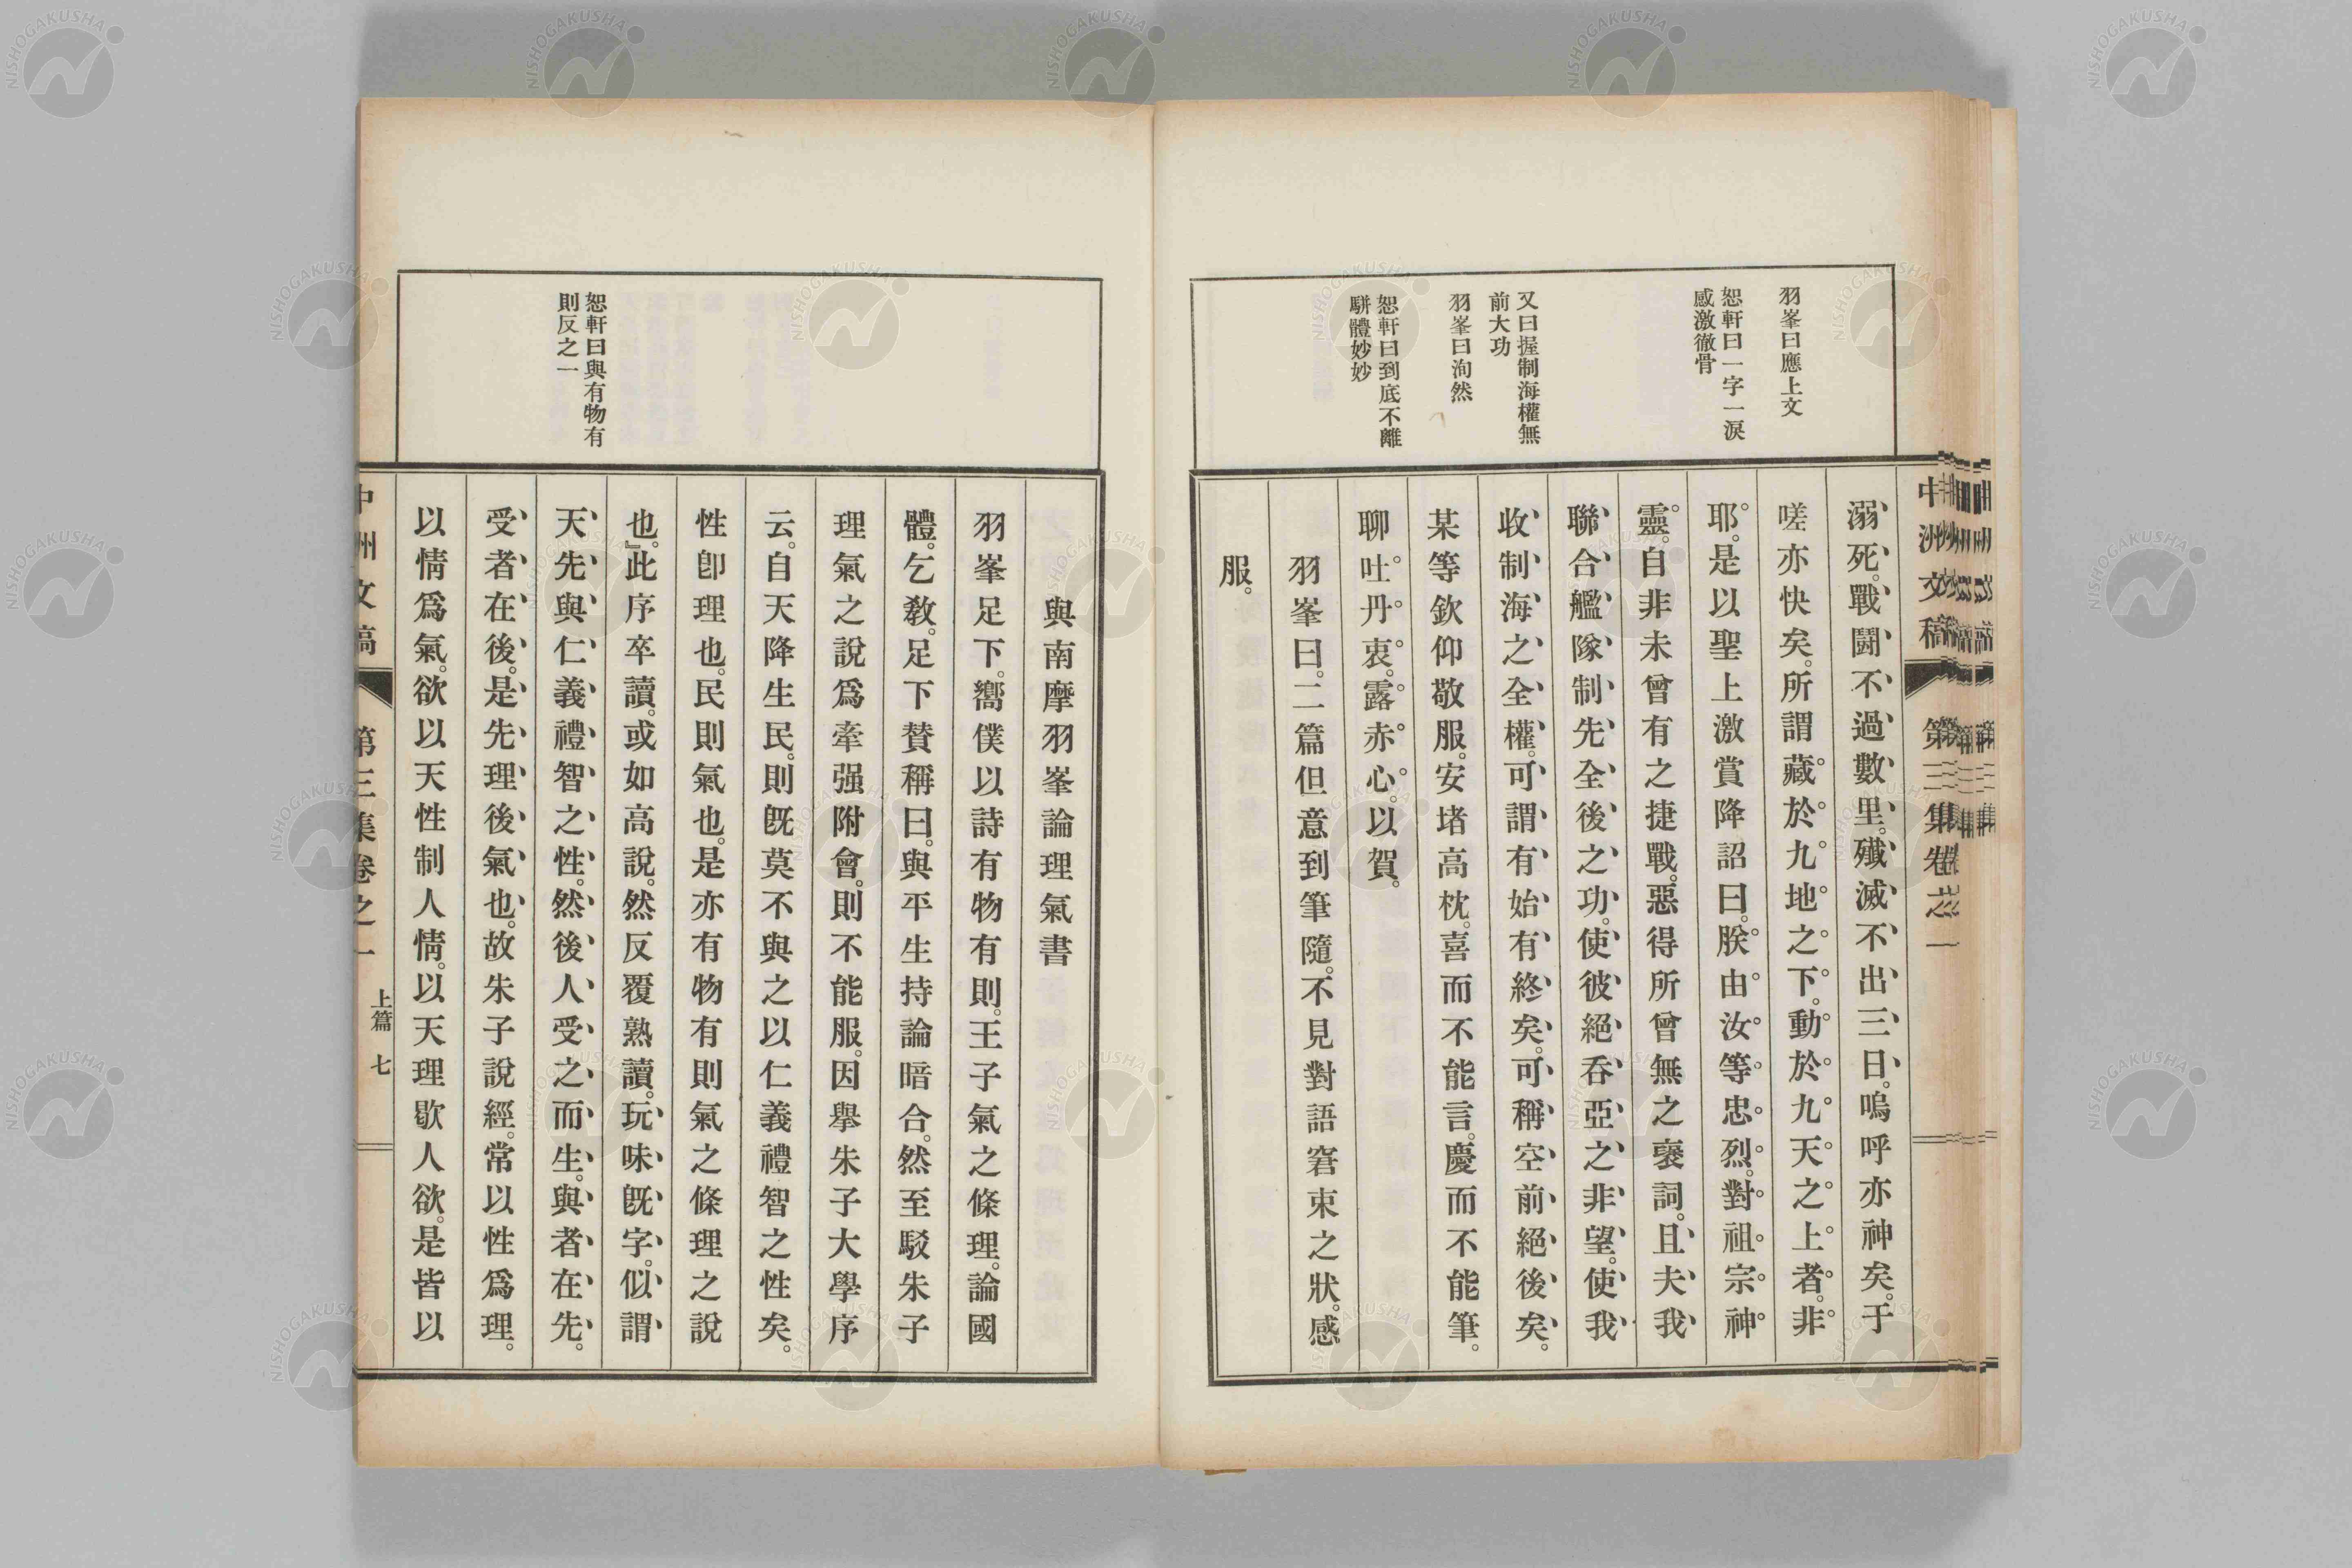 羽峯曰應上文
恕軒曰一字一淚
感激徹骨
又曰握制海權無
前大功
羽峯曰洵然
恕軒曰到底不離
駢體妙妙
中洲文稿 第三集卷之一
溺死。戰鬪不過數里。殲滅不出三日。嗚呼亦神矣。于
嗟亦快矣。所謂藏於九地之下。動於九天之上者。非
耶。是以聖上激賞降詔曰。朕由汝等忠烈。對祖宗神
靈。自非未曾有之捷戰。惡得所曾無之褒詞。且夫我
聯合艦隊制先全後之功。使彼絕吞亞之非望。使我
收制海之全權。可謂有始有終矣。可稱空前絕後矣。
某等欽仰敬服。安堵高枕。喜而不能言。慶而不能筆。
聊吐丹衷。露赤心。以賀。
羽峯曰。二篇但意到筆隨。不見對語窘束之狀。感
服。
恕軒曰與有物有
則反之一
與南摩羽峯論理氣書
羽峯足下。嚮僕以詩有物有則。王子氣之條理。論國
體。乞教。足下贊稱曰。與平生持論暗合。然至駁朱子
理氣之說爲牽强附會。則不能服。因擧朱子大學序
云。自天降生民。則旣莫不與之以仁義禮智之性矣。
性卽理也。民則氣也。是亦有物有則氣之條理之說
也。』此序卒讀。或如高說。然反覆熟讀。玩味旣字。似謂
天先與仁義禮智之性。然後人受之而生。與者在先。
受者在後。是先理後氣也。故朱子說經。常以性爲理。
以情爲氣。欲以天性制人情。以天理歇人欲。是皆以
中洲文稿 第三集卷之一 上篇 七
NISHOGAKUSHA